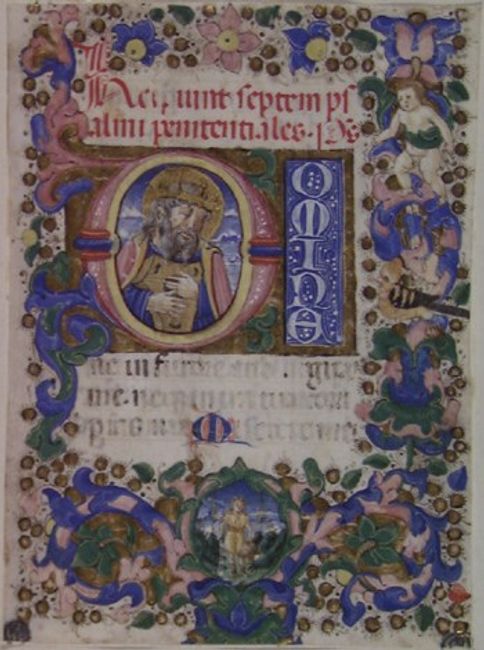 Hec sunt septem ps
almi penitentiales. ps
D
OMINE
ne in furore tuo argua
me. neq in ira tua corri
pias me Miserere me